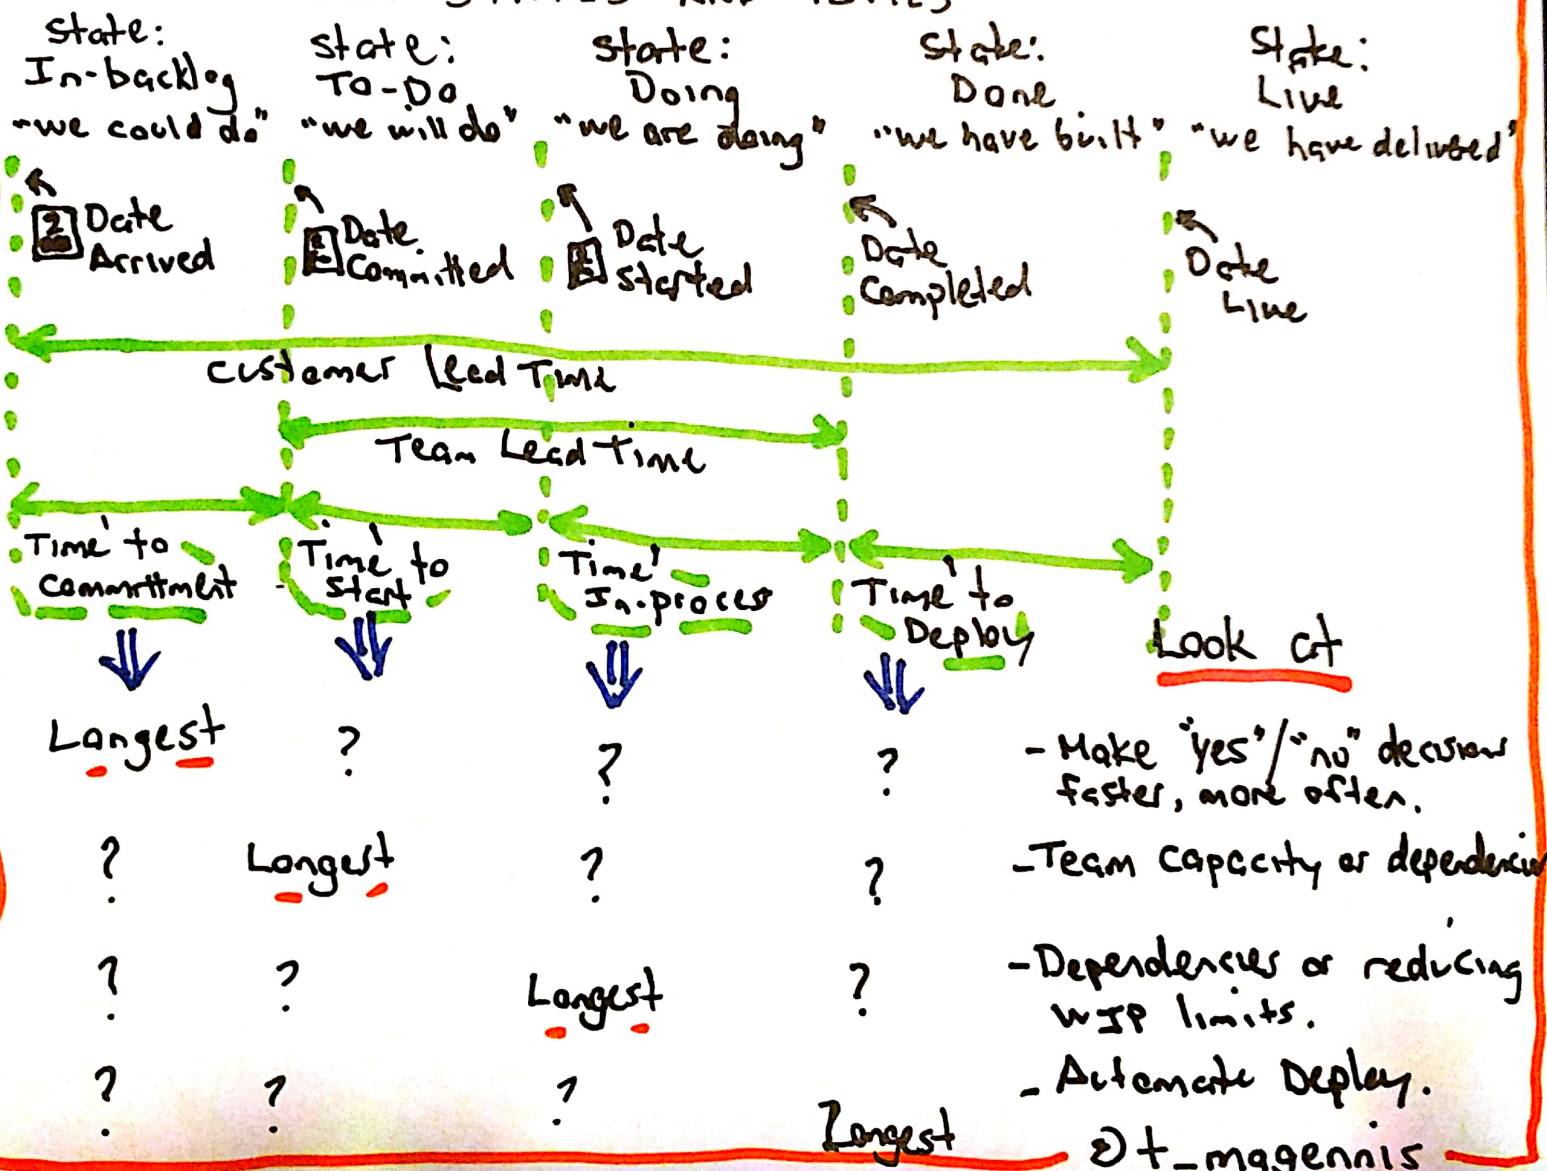 AND
State:
In-backlog
"we could do"
State:
To-Do
"we will do"
State:
Doing
"we are doing"
State:
Done
"we have built"
State:
Live
"we have delivered"
Date
Arrived
Date
Committed
Date
Started
Date
Completed
Date
Live
Customer Lead Time
Team Lead Time
Time to
Committment
Time to
Start
Time
In-process
Time to
Deploy
Look at
Longest ? ? ?
- Make "yes"/"no" decision
faster, more often.
? Longest ? ?
- Team Capacity or dependencies
? ? Longest ?
- Dependencies or reducing
WIP limits.
? ? ? Longest
- Automate Deploy.
@t_magennis